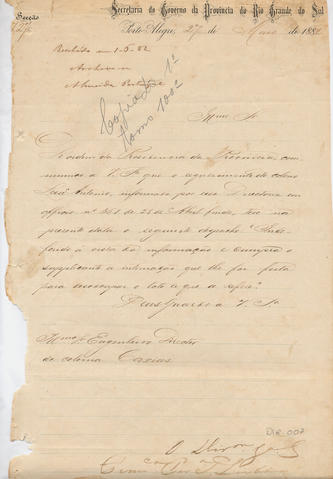 Secretaria do Governo da Provincia do Rio Grande do Sul
Secção
Porto Alegre, 27 de de 1882
Recebido em 1-6-82
Archive-se
Almeida
Copiado 1º
tomo 100
Illmo Sr
De ordem da Presidencia da Provincia com-
munico a V. Sª que o requerimento do colono
José Antonio, informado por essa Directoria em
officio nº 361 de 24 de Abril findo, teve na
presente data o seguinte despacho: "Inde-
ferido á vista da informação e cumpra o
supplicante a intimação que lhe foi feita
para desoccupar o lote a que se refere."
Deus Guarde a V. Sª
Illmo Sr Engenheiro Director
da colonia Caxias
DIR. 007
O Director